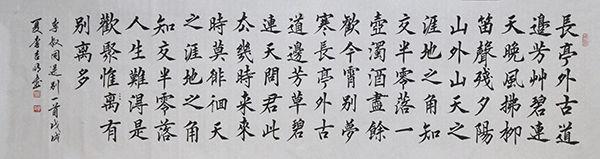 長亭外古道
邊芳艸碧連
天晚風拂柳
笛聲殘夕陽
山外山天之
涯地之角知
交半零落一
壺濁酒盡餘
歡今宵別夢
寒長亭外古
道邊芳草碧
連天問君此
去幾時來來
時莫徘徊天
之涯地之角
知交半零落
人生難得是
歡聚惟离有
別离多
李叔同送别一首戊戌
夏